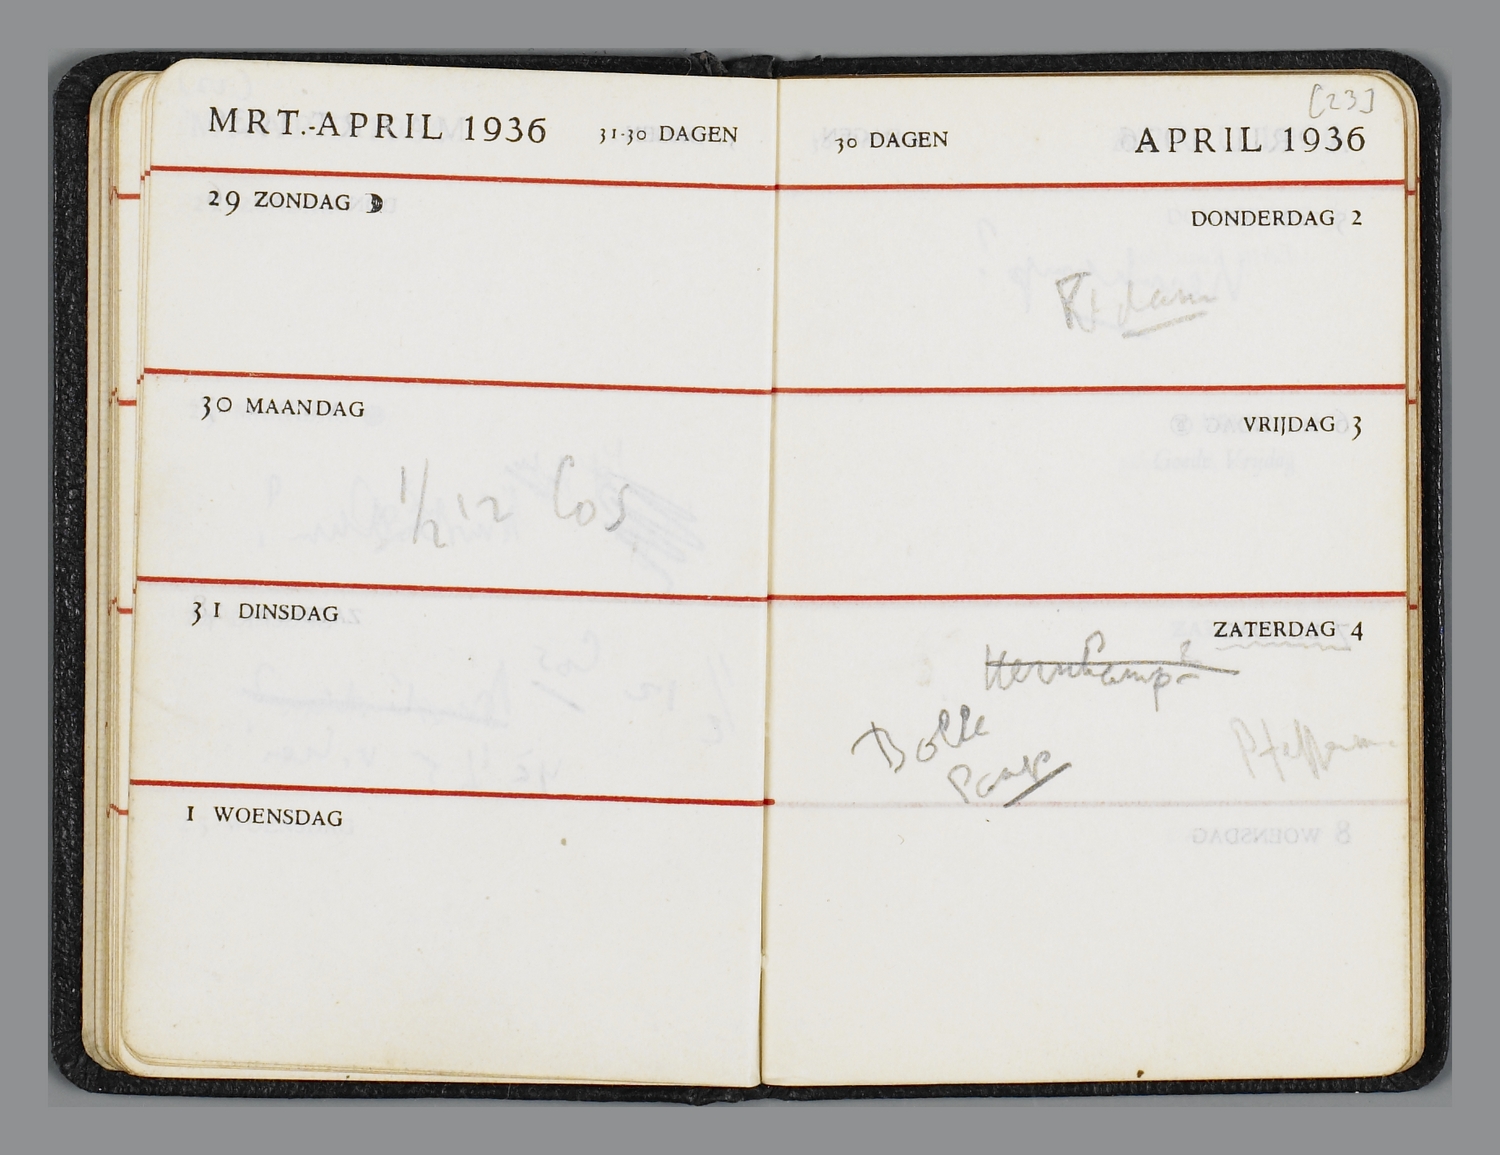 MRT.-APRIL 1936 31-30 DAGEN
29 ZONDAG
30 MAANDAG
1/2 12 Cos
31 DINSDAG
1 WOENSDAG
[23]
30 DAGEN APRIL 1936
DONDERDAG 2
R'dam
VRIJDAG 3
ZATERDAG 4
Kernkamp?
Bolle